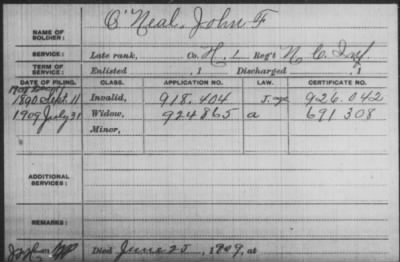 NAME OF SOLDIER: O'Neal, John F
SERVICE: Late rank, Co. H. 1 Reg't N. C. Inf.
TERM OF SERVICE: Enlisted , 1 Discharged , 1
DATE OF FILING. CLASS. APPLICATION NO. LAW. CERTIFICATE NO.
1890 Sept. 11 Invalid, 918.404 926.042
1909 July 31 Widow, 924865 a 691308
Minor,
ADDITIONAL SERVICES:
REMARKS:
Died June 25, 1909, at